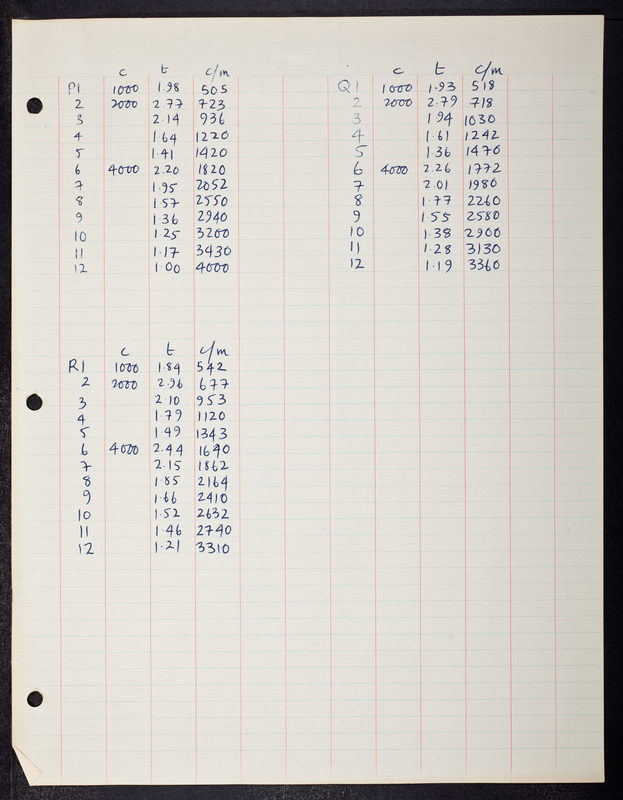 c t c/m
P1 1000 1.98 505
2 2000 2.77 723
3 2.14 936
4 1.64 1220
5 1.41 1420
6 4000 2.20 1820
7 1.95 2052
8 1.57 2550
9 1.36 2940
10 1.25 3200
11 1.17 3430
12 1.00 4000
c t c/m
Q1 1000 1.93 518
2 2000 2.79 718
3 1.94 1030
4 1.61 1242
5 1.36 1470
6 4000 2.26 1772
7 2.01 1980
8 1.77 2260
9 1.55 2580
10 1.38 2900
11 1.28 3130
12 1.19 3360
c t c/m
R1 1000 1.84 542
2 2000 2.96 677
3 2.10 953
4 1.79 1120
5 1.49 1343
6 4000 2.44 1640
7 2.15 1862
8 1.85 2164
9 1.66 2410
10 1.52 2632
11 1.46 2740
12 1.21 3310